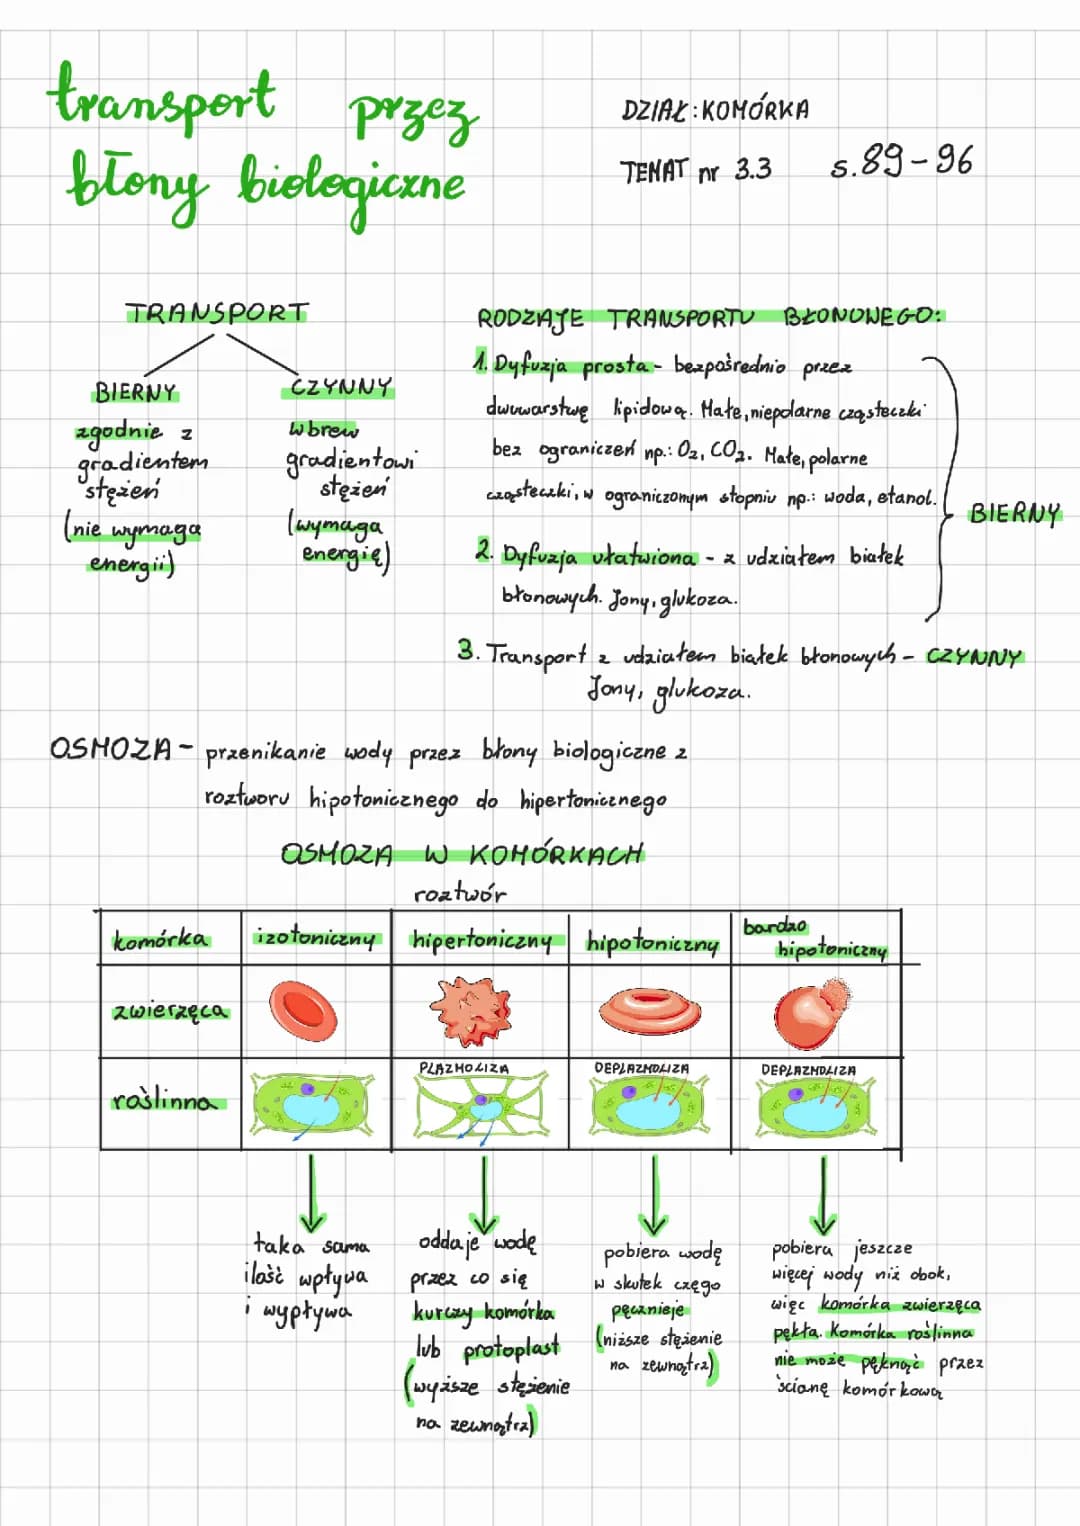 transport przez
błony biologiczne
DZIAŁ: KOMÓRKA
TEMAT nr 3.3 s. 89-96
TRANSPORT
BIERNY
zgodnie z
gradientem
stężeń
(nie wymaga
energii)
CZYNNY
wbrew
gradientowi
stężeń
(wymaga
energię)
RODZAJE TRANSPORTU BŁONOWEGO:
1. Dyfuzja prosta - bezpośrednio przez
dwuwarstwę lipidową. Małe, niepolarne cząsteczki
bez ograniczeń np.: O₂, CO₂. Małe, polarne
cząsteczki, w ograniczonym stopniu np.: woda, etanol.
2. Dyfuzja ułatwiona - z udziałem białek
błonowych. Jony, glukoza.
BIERNY
3. Transport z udziałem białek błonowych - CZYNNY
Jony, glukoza.
OSMOZA - przenikanie wody przez błony biologiczne z
roztworu hipotonicznego do hipertonicznego
OSMOZA W KOMÓRKACH
roztwór
komórka izotoniczny hipertoniczny hipotoniczny bardzo
hipotoniczny
zwierzęca
PLAZMOLIZA DEPLAZMOLIZA DEPLAZMOLIZA
roślinna
taka sama
ilość wpływa
i wypływa
oddaje wodę
przez co się
kurczy komórka
lub protoplast
(wyższe stężenie
na zewnątrz)
pobiera wodę
w skutek czego
pęcznieje
(niższe stężenie
na zewnątrz)
pobiera jeszcze
więcej wody niż obok,
więc komórka zwierzęca
pękła. Komórka roślinna
nie może pęknąć przez
ścianę komórkową